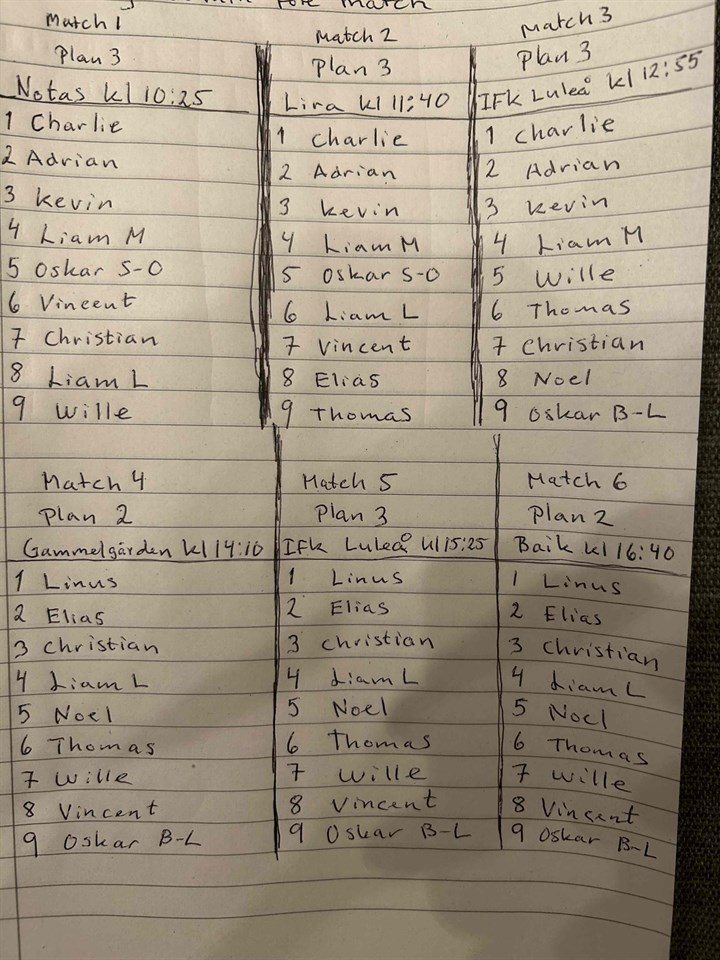 fore match
Match 1
Plan 3
Notas kl 10:25
1 Charlie
2 Adrian
3 Kevin
4 Liam M
5 Oskar S-O
6 Vincent
7 Christian
8 Liam L
9 Wille
Match 2
Plan 3
Lira kl 11:40
1 Charlie
2 Adrian
3 Kevin
4 Liam M
5 Oskar S-O
6 Liam L
7 Vincent
8 Elias
9 Thomas
Match 3
Plan 3
IFK Luleå kl 12:55
1 Charlie
2 Adrian
3 Kevin
4 Liam M
5 Wille
6 Thomas
7 Christian
8 Noel
9 Oskar B-L
Match 4
Plan 2
Gammelgården kl 14:10
1 Linus
2 Elias
3 Christian
4 Liam L
5 Noel
6 Thomas
7 Wille
8 Vincent
9 Oskar B-L
Match 5
Plan 3
IFK Luleå kl 15:25
1 Linus
2 Elias
3 Christian
4 Liam L
5 Noel
6 Thomas
7 Wille
8 Vincent
9 Oskar B-L
Match 6
Plan 2
Baik kl 16:40
1 Linus
2 Elias
3 Christian
4 Liam L
5 Noel
6 Thomas
7 Wille
8 Vincent
9 Oskar B-L